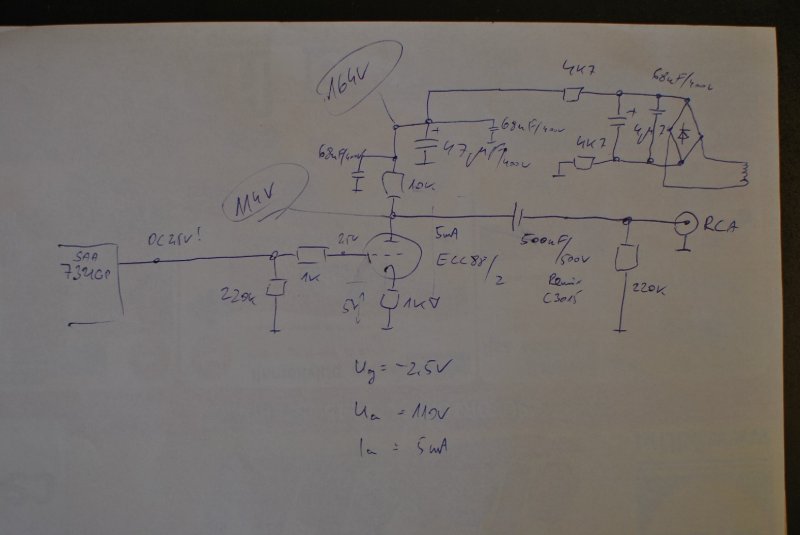 164V
4K7
68uF/400V
68uF/400V
68uF/400V
47µF/400V
4K7
10K
114V
DC 2,5V!
2,5V
5mA
500nF/500V
RCA
SAA
220K
1K
ECC88/2
5V
1K
C3015
220K
Ug = -2,5V
Ua = 110V
Ia = 5mA